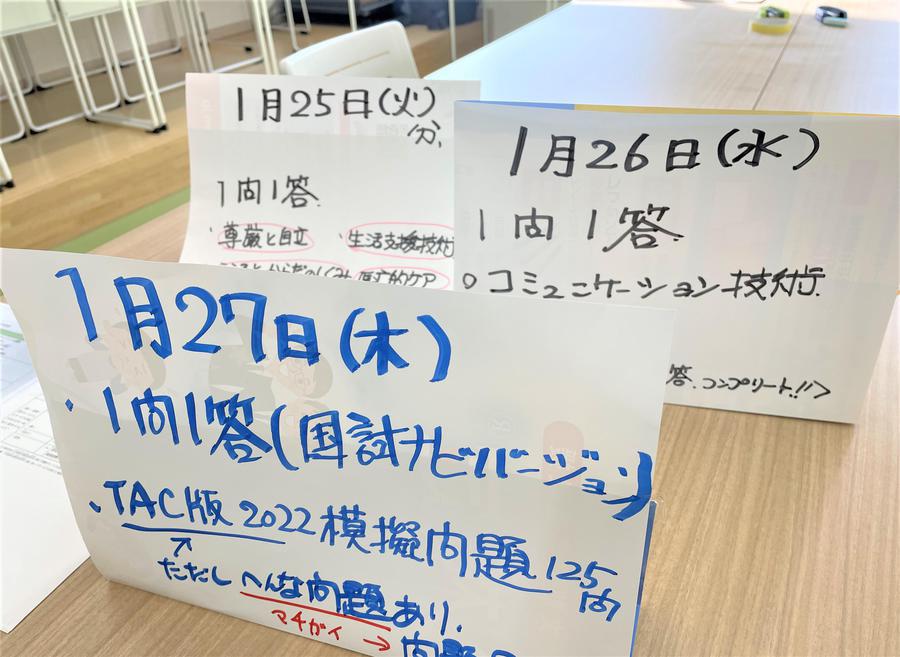 1月25日(火)
分、
1問1答
・尊厳と自立 ・生活支援技術
こころとからだのしくみ 医療的ケア
1月26日(水)
1問1答
○コミュニケーション技術
答、コンプリート!!>
1月27日(木)
・1問1答(国試ナビバージョン)
・TAC版2022模擬問題125問
ただし へんな問題あり.
マチガイ→問題